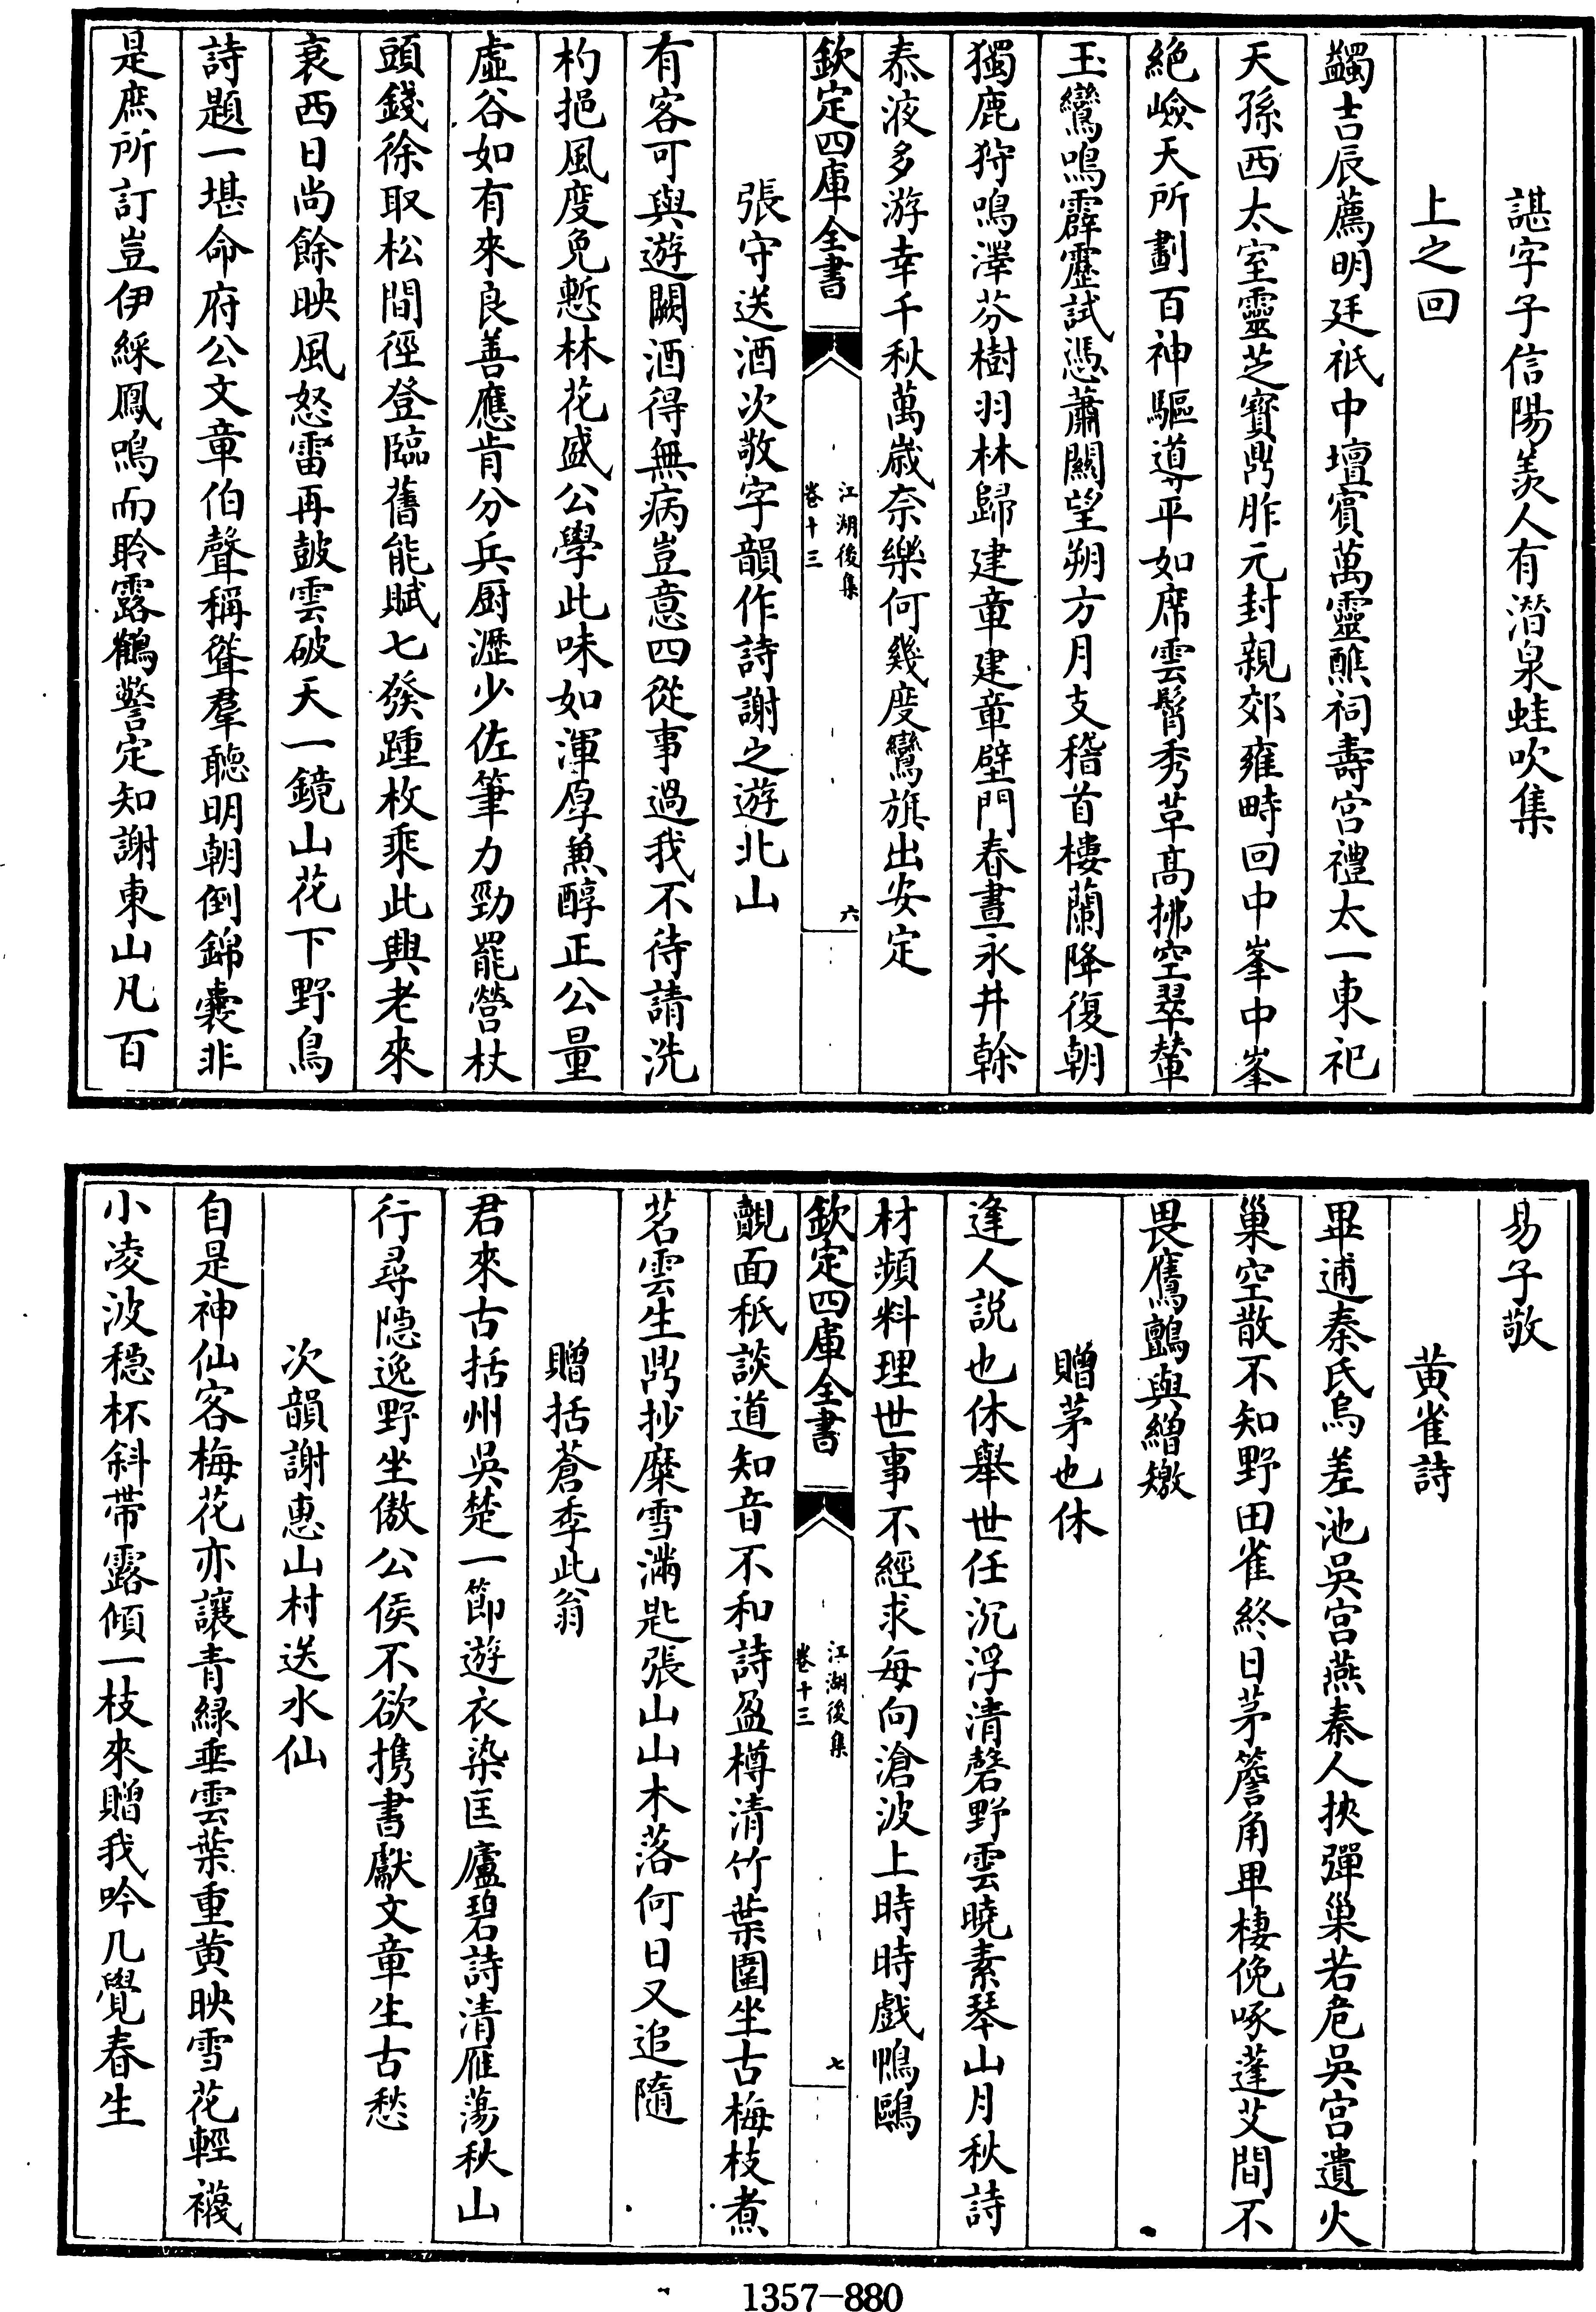 諶字子信陽羨人有潛泉蛙吹集
上之回
蠲吉辰薦明廷祇中壇賓萬靈醮祠壽宮禮太一東祀
天孫西太室靈芝寳鼎胙元封親郊雍畤回中峯中峯
絶嶮天所劃百神驅導平如席雲髾秀草髙拂空翠輦
玉鸞鳴霹靂試憑蕭關望朔方月支稽首樓蘭降復朝
獨鹿狩鳴澤芬樹羽林歸建章建章壁門春晝永井幹
泰液多游幸千秋萬歲奈樂何幾度鸞旗出安定
欽定四庫全書
江湖後集
卷十三
六
張守送酒次敬字韻作詩謝之遊北山
有客可與遊闕酒得無病豈意四從事過我不待請洗
杓挹風度免慙林花盛公學此味如渾厚兼醇正公量
虛谷如有來良善應肯分兵厨瀝少佐筆力勁罷營杖
頭錢徐取松間徑登臨舊能賦七發踵枚乘此興老來
衰西日尚餘映風怒雷再鼓雲破天一鏡山花下野鳥
詩題一堪命府公文章伯聲稱聳羣聽明朝倒錦囊非
是庶所訂豈伊綵鳳鳴而聆露鶴警定知謝東山凡百
易子敬
黄雀詩
畢逋秦氏烏差池吳宮燕秦人挾彈巢若危吳宮遺火
巢空散不知野田雀終日茅簷角卑棲俛啄蓬艾間不
畏鷹鸇與繒繳
贈茅也休
逢人説也休舉世任沉浮清磬野雲曉素琴山月秋詩
材頻料理世事不經求每向滄波上時時戲鴨鷗
欽定四庫全書
江湖後集
卷十三
七
覿面秪談道知音不和詩盈樽清竹葉圍坐古梅枝煮
茗雲生鼎抄糜雪滿匙張山山木落何日又追隨
贈括蒼季此翁
君來古括州吳楚一節遊衣染匡廬碧詩清雁蕩秋山
行尋隱逸野坐傲公侯不欲攜書獻文章生古愁
次韻謝惠山村送水仙
自是神仙客梅花亦讓青緑垂雲葉重黄映雪花輕襪
小凌波穏杯斜帶露傾一枝來贈我吟几覺春生
1357-880